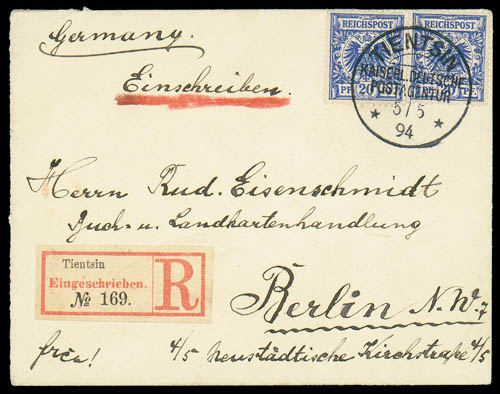 Germany.
Einschreiben.
REICHSPOST REICHSPOST
PF. 20 PF.
TIENTSIN
KAISERL. DEUTSCHE
POSTAGENTUR
5/5
94
Herrn Rud. Eisenschmidt
Buch- u. Landkartenhandlung
Tientsin
Eingeschrieben.
№ 169.
R
Berlin N.W. 7
frco! 4/5 Neustädtische Kirchstraße 4/5